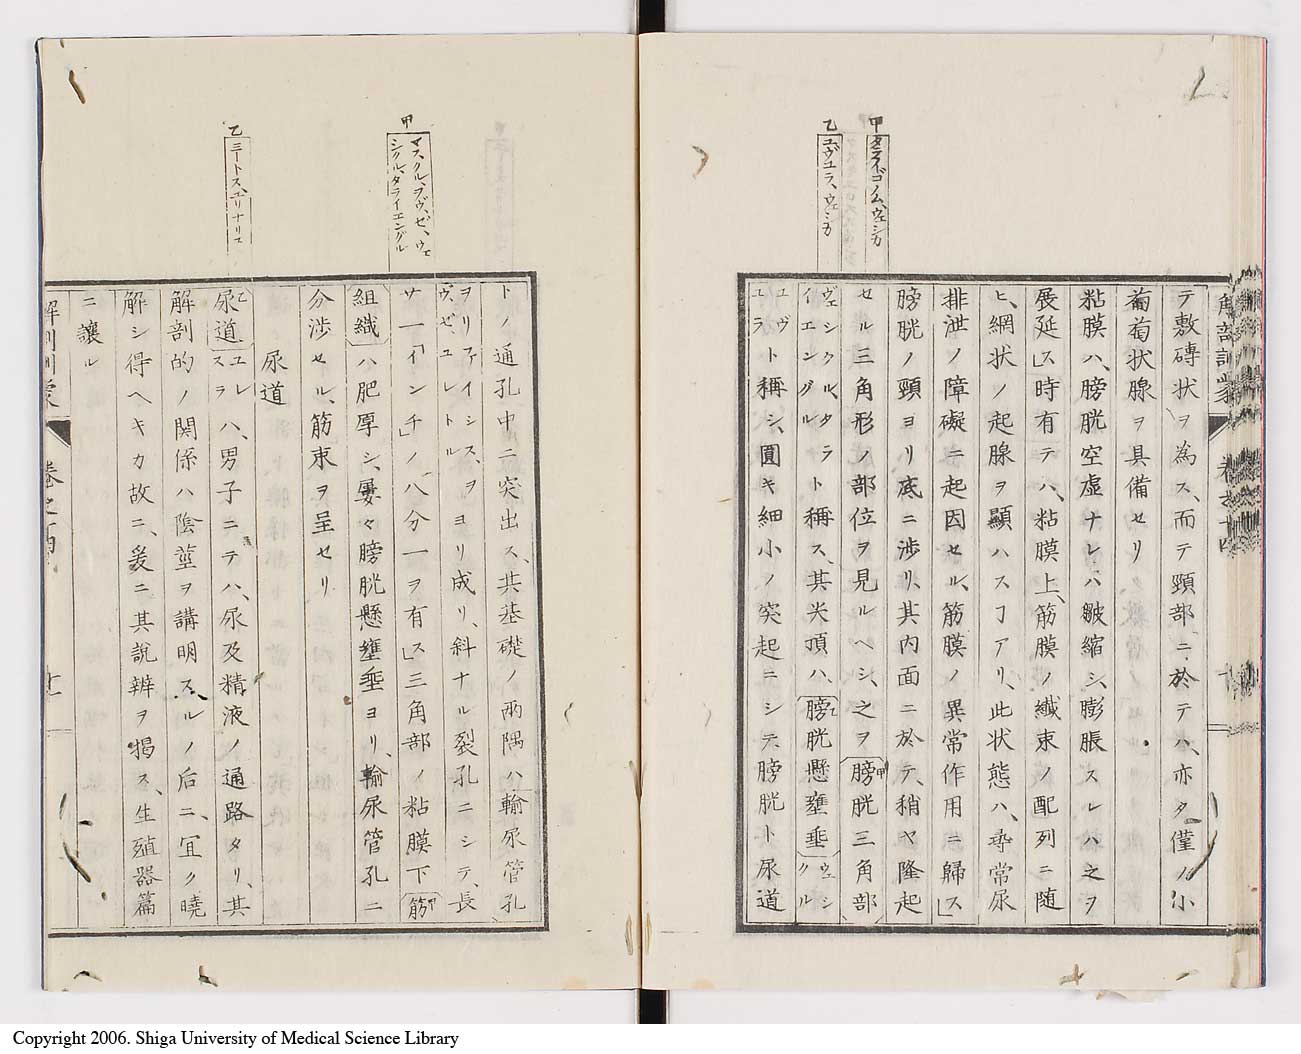 甲 タライゴノム、ウェシカ
乙 ユヴュラ、ウェシカ
テ敷磚状ヲ為ス、而テ頸部ニ於テハ、亦タ僅ノ小
葡萄状腺ヲ具備セリ
粘膜ハ、膀胱空虚ナレハ皺縮シ、膨脹スルハ之ヲ
展延」ス時有テハ、粘膜上、筋膜ノ纎束ノ配列ニ随
ヒ、網状ノ起腺ヲ顯ハスヿアリ、此状態ハ、尋常尿
排泄ノ障礙ニ起因セル、筋膜ノ異常作用ニ歸ス」
膀胱ノ頸ヨリ底ニ渉リ、其内面ニ於テ、稍ヤ隆起
セル三角形ノ部位ヲ見ルヘシ、之ヲ甲膀胱三角部
ヴェシクル、タライエングルト稱ス、其尖頂ハ、乙膀胱懸壅垂ウェシクル
ユヴュラト稱シ、圓キ細小ノ突起ニシテ、膀胱ト尿道
甲 マスクル、ヲヴ、ゼ、ウェシクル、タライエングル
乙 ミートス、ユリナリス
トノ通孔中ニ突出ス、其基礎ノ兩隅ハ、輸尿管孔
ヲリファイシス、ヲヴ、ゼ、ユレトルヨリ成リ、斜ナル裂孔ニシテ、長
サ一「インチ」ノ八分一ヲ有ス」三角部ノ粘膜下甲筋
組織ハ肥厚シ、屡々膀胱懸壅垂ヨリ、輸尿管孔ニ
分渉セル、筋束ヲ呈セリ
尿道
乙尿道ユレスラハ、男子ニテハ、尿及精液ノ通路タリ、其
解剖的ノ関係ハ陰莖ヲ講明スルノ后ニ、宜ク曉
解シ得ヘキカ故ニ、爰ニ其説辨ヲ掲ス、生殖器篇
ニ讓ル
Copyright 2006. Shiga University of Medical Science Library